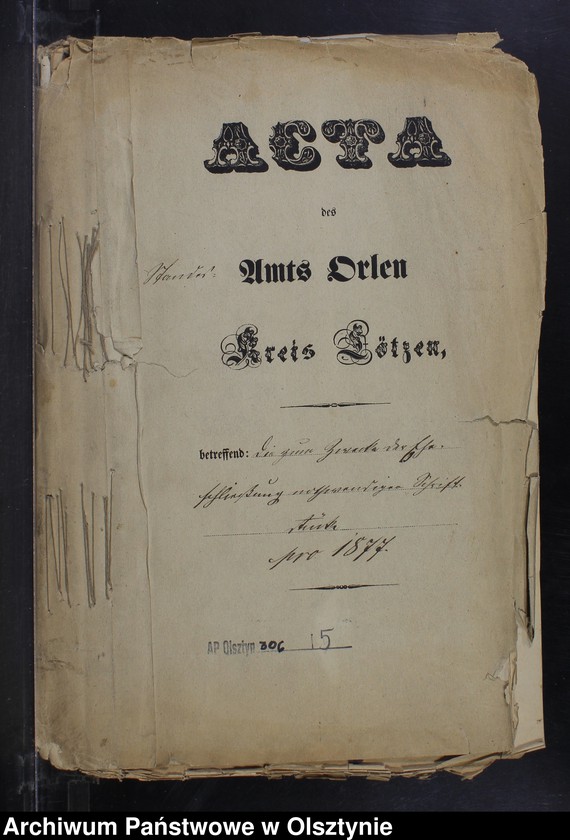 ACTA
des
Standes-
Amts Orlen
Kreis Lötzen,
betreffend: die zum Zwecke der Ehe-
schließung nothwendigen Schrift-
stücke
pro 1877.
AP Olsztyn 306 15
Archiwum Państwowe w Olsztynie